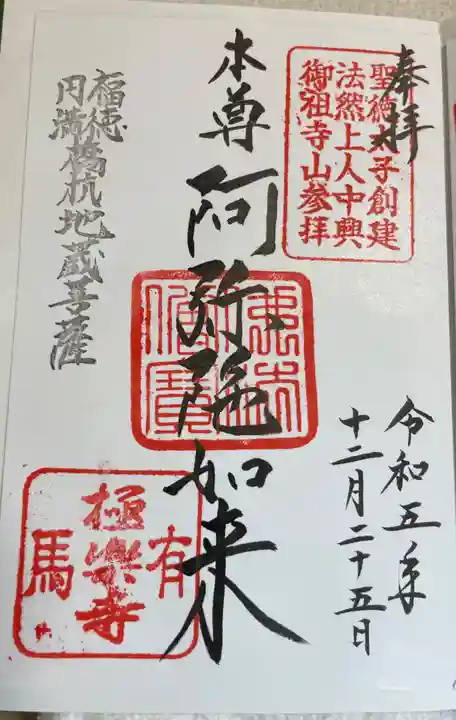 奉拝
聖徳太子創建
法然上人中興
御祖寺山参拝
本尊 阿弥陀如来
令和五年
十二月二十五日
福徳
円満
橋杭地蔵菩薩
有馬
極楽寺